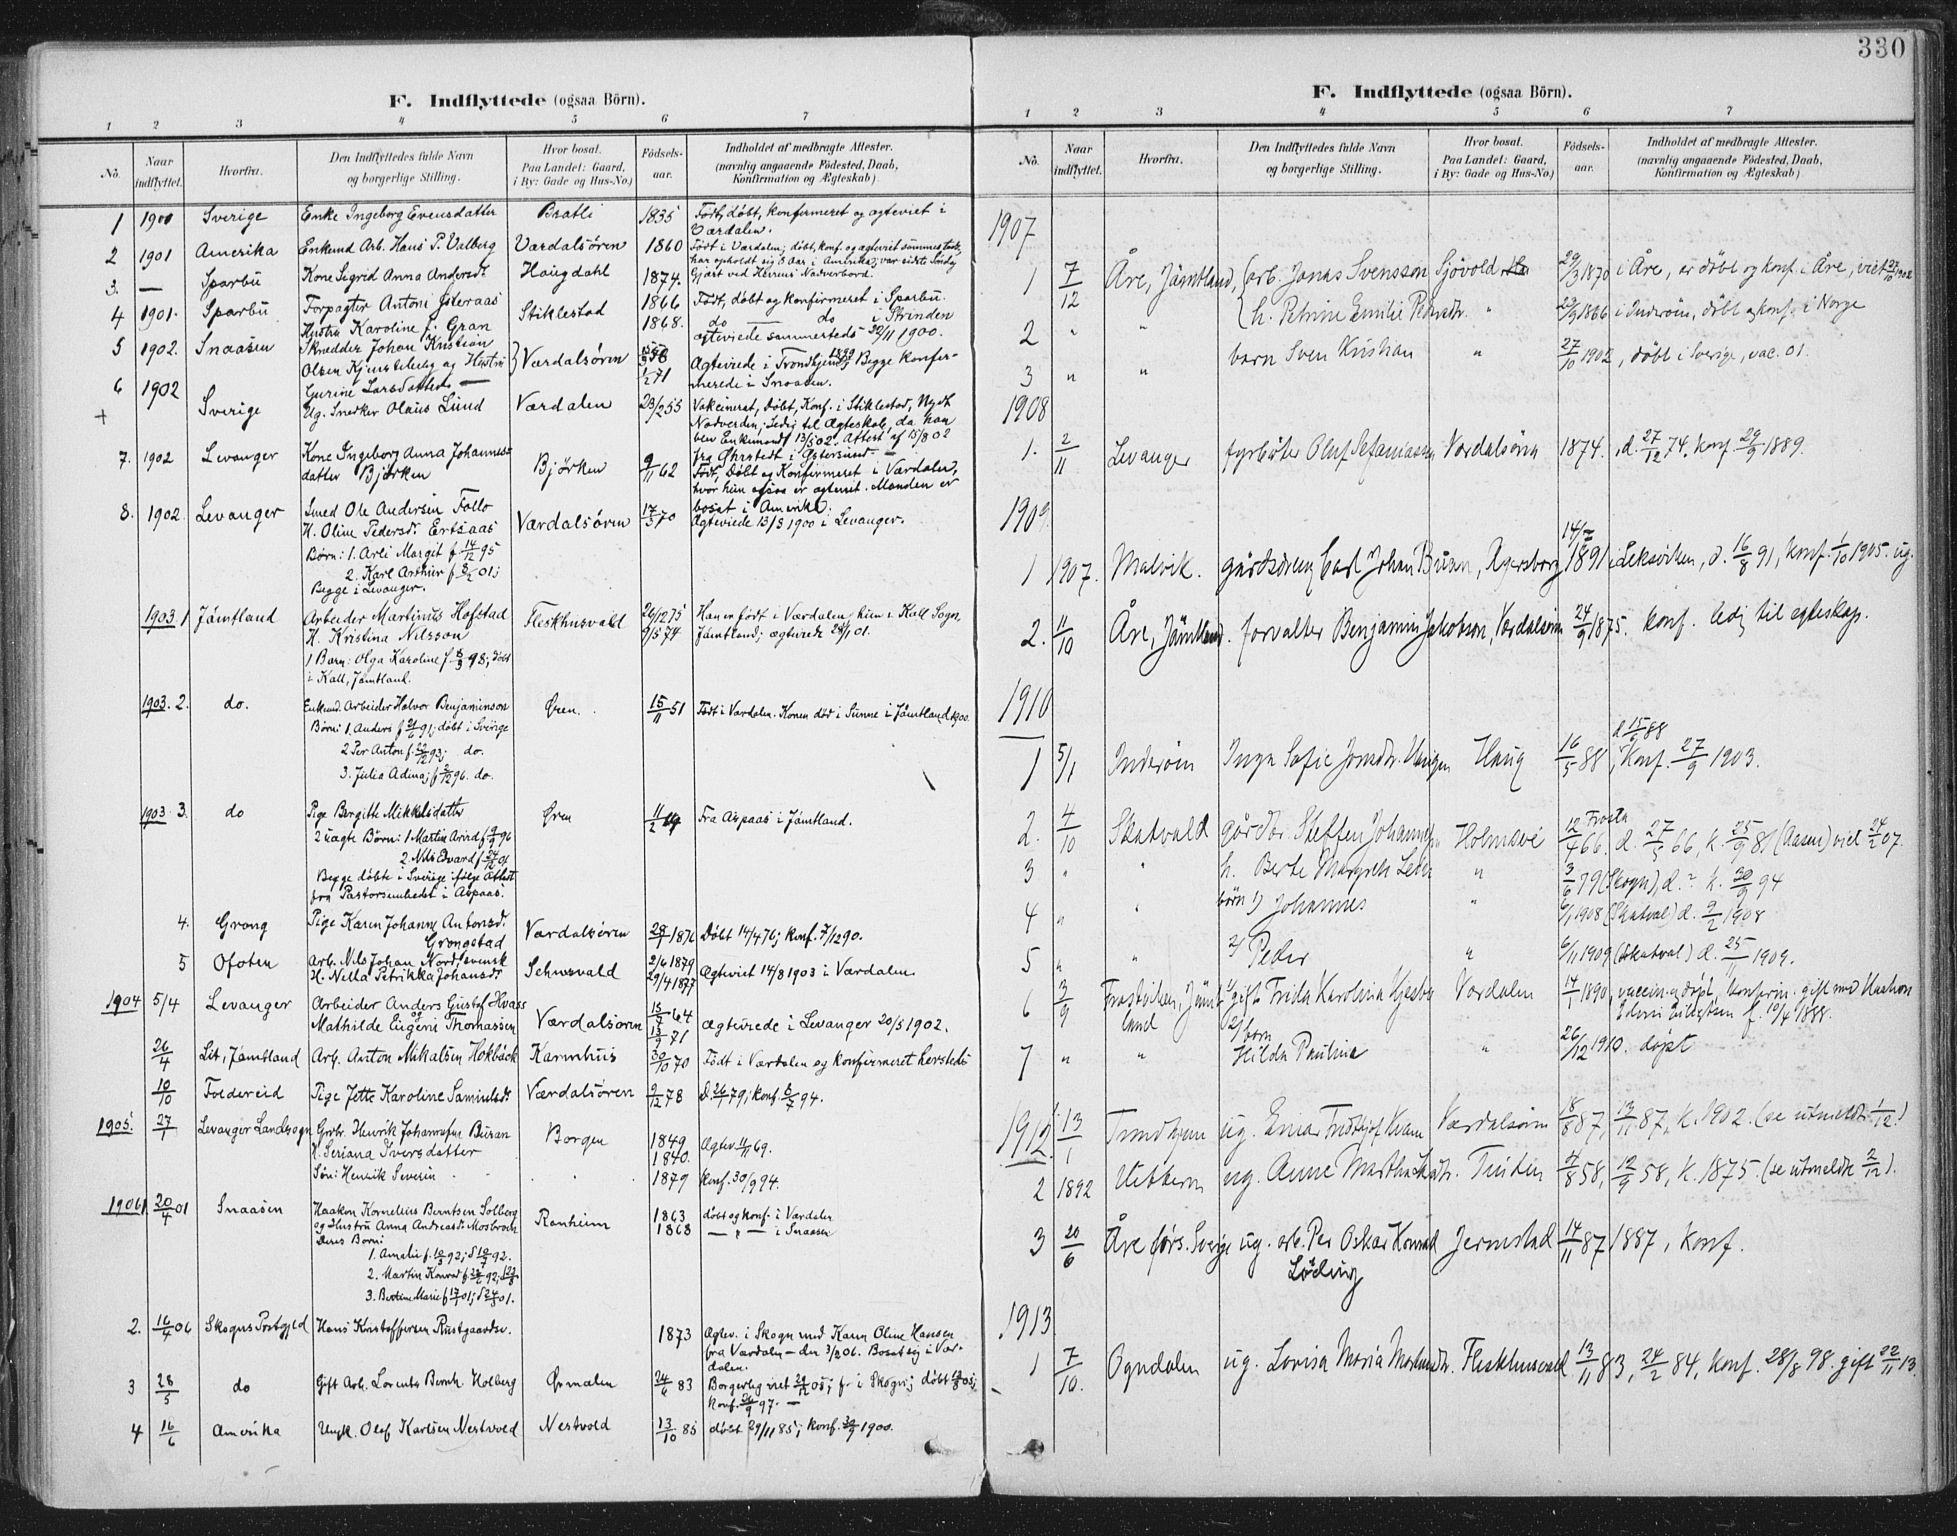 330
F. Indflyttede (ogsaa Börn).
1 2 3 4 5 6 7
No. Naar indflyttet. Hvorfra. Den Indflyttedes fulde Navn og borgerlige Stilling. Hvor bosat. Paa Landet: Gaard, i By: Gade og Hus-No.) Födsels-aar. Indholdet af medbragte Attester. (navnlig angaaende Födested, Daab, Konfirmation og Ægteskab)
1 1900 Sverige Enke Ingeborg Evensdatter Bratli 1835 Födt, döbt, konfermeret og ægteviet i
Værdalen.
2 1901 Amerika Enkemd Arb. Hans P. Valberg Værdalsören 1860 Födt i Værdalen; döbt, konf. og ægteviet sammesteds,
har opholdt sig 8 Aar i Amerika; var sidste Söndag
3. — Sparbu Kone Sigrid Anna Andersdt Haugdahl 1874. Gjæst ved Herrens Nadverbord.
4 1901. Sparbu Forpagter Antoni Østeraas Stiklestad 1866 Födt, döbt og konfirmeret i Sparbu.
Hustru Karoline f. Gran 1868. do — do i Strinden
ægteviede sammesteds 30/11 1900.
5 1902. Snaasen Skrædder Johan Kristian
Olsen Kjensteberg og Hustru Værdalsören Ægteviede i Trondhjem Begge konfer-
6 1902 Gurine Larsdatter — 1/2 71 merede i Snaasen.
+ Sverige Ug. Snedker Olaus Lund Værdalen 23/2 55 Vakcineret, Döbt, Konf. i Stiklestad, Nydt
Nadverden; Ledig til Ægteskab, da han
blev Enkemand 13/5 02. Attest af 15/8 02
fra Øhrstedt i Østersund. —
7. 1902 Levanger Kone Ingeborg Anna Johannes-
datter Bjørken Bjørken 9/11 62 Födt, Döbt og Konfirmeret i Værdalen,
hvor hun ogsaa er ægteviet. Manden er
bosat i Amerika.
8. 1902. Levanger Smed Ole Andersen Follo
H. Oline Pedersd. Ertsaas Værdalsören 17/3 70 Ægteviede 13/5 1900 i Levanger.
Börn: 1. Arli Margit f. 14/12 95
2. Karl Arthur f. 8/2 01;
Begge i Levanger.
1903. 1 Jämtland Arbeider Martinus Hofstad Fleskhusvald 26/12 75 Han er födt i Værdalen, hun i Kall Sogn,
H. Kristina Nilsson 9/5 74 Jämtland; ægteviede 01.
1 Barn: Olga Karoline f. 8/3 98; födt
i Kall, Jämtland.
1903. 2. do. Enkemd. Arbeider Halvor Benjaminson Ören. 15/11 51 Födt i Værdalen. Konen död i Sunne i Jämtland 1900.
Börn: 1. Anders f. 91; döbt i Sverige
2 Per Anton f. 93; do.
3. Julia Adina; f. 96. do.
1903 3. do Pige Bergitte Mikkelsdatter Ören 11/2 Fra Aspaas i Jämtland.
2 uægte Börn: 1 Martin Arvid f. 96
2. Nils Edvard f. 24/12 01
Begge döbte i Sverige ifölge Attest
fra Pastorsembedet i Aspaas.
4. Grong Pige Karen Johanne Antonsd.
Grongstad Værdalsören 28/1 1876 Döbt 14/4 76; konf. 7/12 90.
5 Ofoten Arb. Nils Johan Nordsvensk Schusvald 2/4 1879
H. Nella Petrikka Johansd. 29/4 1877 Ægteviet 14/8 1903 i Værdalen.
1904 5/4 Levanger Arbeider Anders Gustaf Hvass
og
Mathilde Eugeni Thomassen Værdalsören 64 71 Ægteviede i Levanger 20/5 1902.
26/4 Lit, Jämtland Arb. Anton Mikalsen Hokbäck Karmhus 30/10 70 Födt i Værdalen og konfirmeret hersteds
10/10 Foldereid Pige Jette Karoline Samuelsd. Værdalsören 9/12 78 D. 26/1 79; konf. 8/7 94.
1905 27/1 Levanger Landsogn Grbr. Henrik Johannesen Buran Borgen 1849 Ægtev. 69.
H. Seriana Iversdatter 1840.
Sön: Henrik Severin 1879 Konf. 30/9 94.
1906 1. 20/4 01 Snaasen Haaken Kornelius Berntsen Solberg Ranheim 1863 döbt og konf. i Værdalen
og Hustru Anna Andreasd. Mosbroen 1868 — " — i Snaasen
Deres Börn:
1. Amalie f. 92; d. 92.
2. Martin Konrad f. 92,
3. Bertine Marie f. 01; 01.
2. 16/4 06 Skogns Prstgjld Hans Kristoffersen Rustgaardse. 1873 Ægtev. i Skogn med Karen Oline Hansen
fra Værdalen — den 3/2 06. Bosat sig i Vær-
dalen.
3 28/5 do Gift Arb. Lorents Bernh. Holberg Ørmælen 24/6 83 Borgerlig viet 05; f. i Skogn; döbt
konf. 97. —
4 16/6 Amerika Ungk. Olaf Karlsen Nestvold Nestvold 13/10 85 döbt 29/11 85; konf. 1900.
F. Indflyttede (ogsaa Börn).
1 2 3 4 5 6 7
No. Naar indflyttet. Hvorfra. Den Indflyttedes fulde Navn og borgerlige Stilling. Hvor bosat. Paa Landet: Gaard, i By: Gade og Hus-No.) Födsels-aar. Indholdet af medbragte Attester. (navnlig angaaende Födested, Daab, Konfirmation og Ægteskab)
1907
1 7/12 Åre, Jämtland, arb. Jonas Svensson Sjövold 29/3 1870 i Åre, er döbt og konf. i Åre, viet 27/10 1902
2 " " h. Petrine Emilie Pedersdr. " 1866 i Inderöen, döbt og konf. i Norge
3 " " barn Sven Kristian " 27/10 1902, döbt i Sverige, vac. 01.
1908
1. 2/11 Levanger fyrböter Oluf Sefaniassen Værdalsören 1874. d. 27/12 74, konf. 29/9 1889.
1909.
14/7
1 1907. Malvik. gårdsdreng Carl Johan Buan, Agersborg 1891, Leksviken, d. 16/8 91, konf. 1/10 1905. ug.
2. 11/10 Åre, Jämtland. forvalter Benjamin Jakobson, Værdalsören 24/9 1875. konf. ledig til egteskap.
1910
d. 15/ 88
1 5/1 Inderöen Inga Sofie Jonsdr. Haug 16/5 88, Konf. 27/9 1903.
2. 4/10 Skatvald gårdbr. Steffen Johannesen Holmsve 12/4 66. Frosta d. 27/5 66, k. 25/9 81 (Aasen) viet 24/2 07.
3 " " h. Berte Margrete " 3/6 79 (Skogn), d. ? k. 30/9 94
4 " " börn 1) Johannes " 6/1 1908 (Skatval) d. 9/2 1908
5 " " 2) Peder " 6/11 1909 (Skatval) d. 25/11 1909.
6 3/9 Frostviken, Jämt- 1) gift Frida Karolina Værdalen 14/1 1890, vaccin. döpt, konfirm. gift med Haakon
land Edvin f. 10/4 1888.
7 " " 2) barn
Hilda Paulina " 26/12 1910. döpt
1912. 1 13/1 Trondhjem ug. Einar Fridtjof Kvam Værdalsören 18/8 87, 13/11 87, k. 1902. (se utmeldt 1/12.)
2 1892 Ytterøen ug. Anne Martha Tinden 4/8 58, 12/9 58, k. 1875 (se utmeldte 2/12).
3 20/6 Åre förs. Sverige ug. arb. Per Oskar Konrad Jermstad 14/11 87 1887, konf.
Löding
1913
1 7/10. Ogndalen ug. Lovisa Maria Fleskhusvald 13/11 83, 24/2 84, konf. 28/8 98. gift 22/11 13.